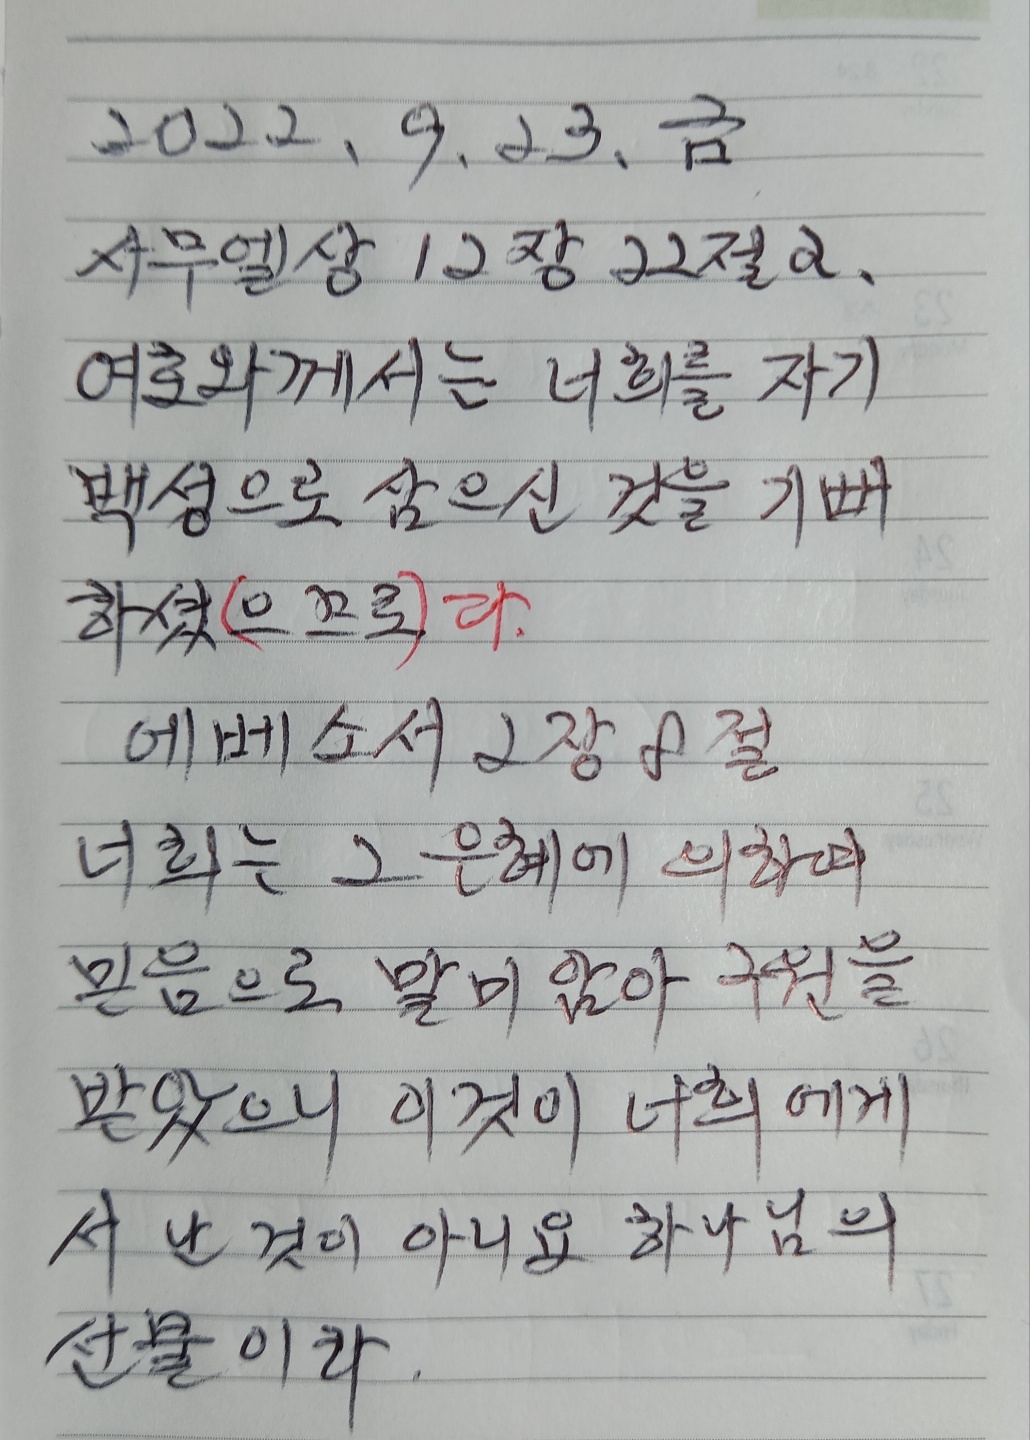 2022. 9. 23. 금
사무엘상 12장 22절2.
여호와께서는 너희를 자기
백성으로 삼으신 것을 기뻐
하셨(으므로)다.
에베소서 2장 8절
너희는 그 은혜에 의하여
믿음으로 말미암아 구원을
받았으니 이것이 너희에게
서 난 것이 아니요 하나님의
선물이라.